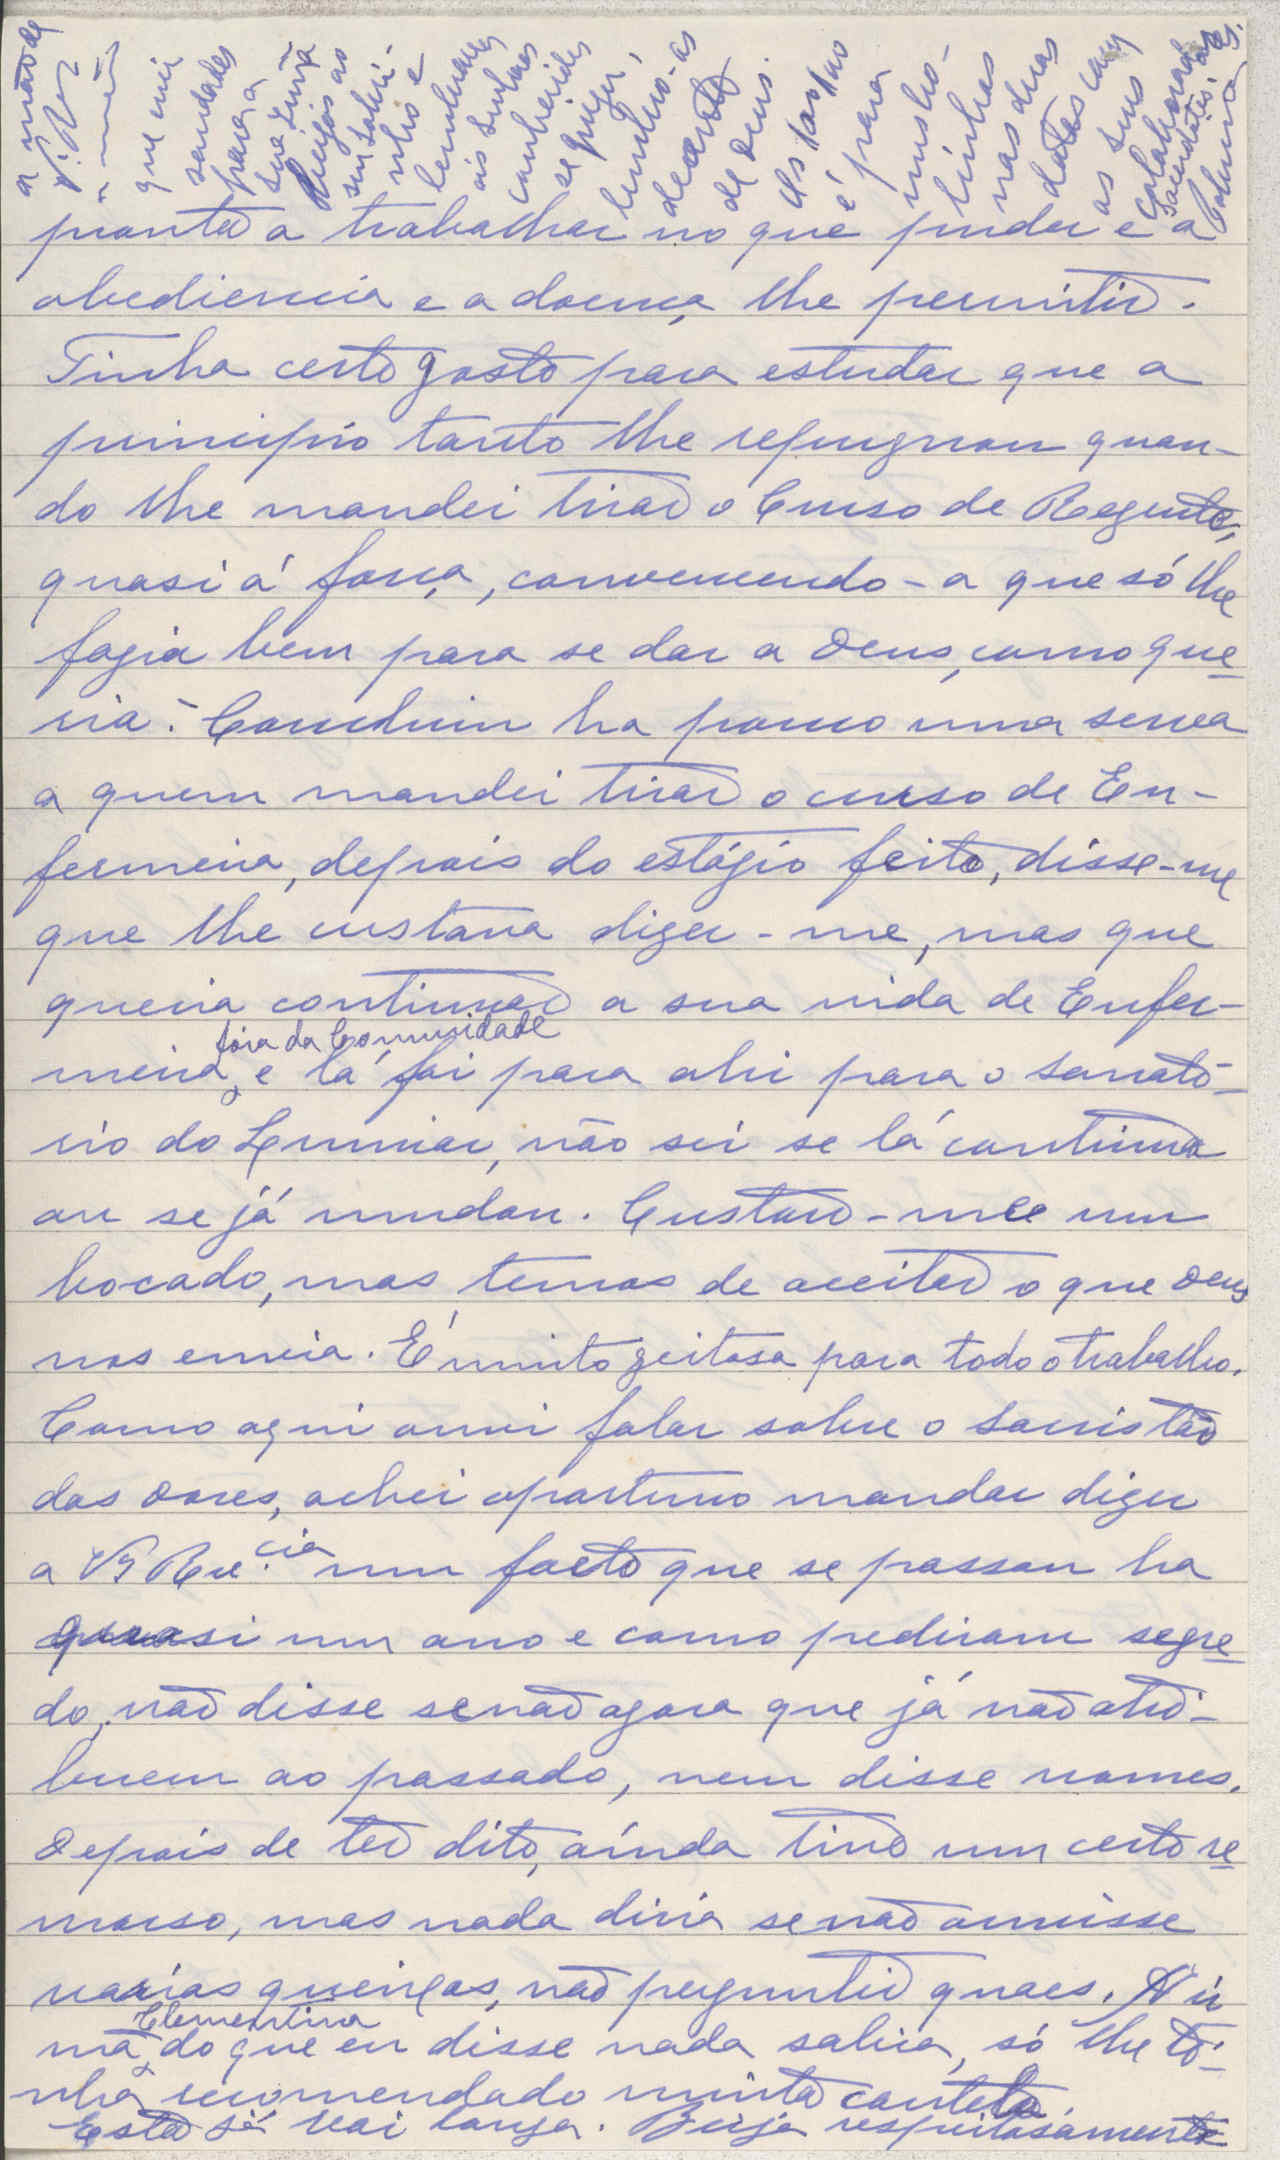 pronta a trabalhar no que puder e a
obediencia e a doença lhe permitir.
Tinha certo gosto para estudar que a
principio tanto lhe repugnou quan-
do lhe mandei tirar o Curso de Regente,
quasi á força, convencendo-a que só lhe
fazia bem para se dar a Deus, como que
ria. Concluiu ha pouco uma
a quem mandei tirar o curso de En-
fermeira, depois do estágio feito, disse-me
que lhe custava dizer-me, mas que
queria continuar a sua vida de Enfer-
fóra da Comunidade
meira, e lá foi para ahi para o Sanató-
rio do Lumiar, não sei se lá continua
ou se já mudou. Custou-me um
bocado, mas temos de aceitar o que Deus
nos envia. É muito geitosa para todo o trabalho.
Como aqui ouvi falar sobre o Sacristão
das Dores, achei oportuno mandar dizer
a V. Rev.cia um facto que se passou ha
quasi um ano e como pediram segre
do, não disse senão agora que já não atri-
buem ao passado, nem disse nomes.
Depois de ter dito, ainda tive um certo re
morso, mas nada diria se não ouvisse
varias queixas, não perguntei quaes. A Ir
Clementina
mã do que eu disse nada sabia, só lhe ti-
nha recomendado muita cautela.
Esta já vai longa. Beija respeitosamente
a mão de
V. Rev.
que envia
saudades
para a
sua Irmã
Beijos ao
sobrinho e
lembranças
ás Senhoras
conhecidas
se puder,
de Deus.
é para
nas duas
datas com
os seus
Colaboradores